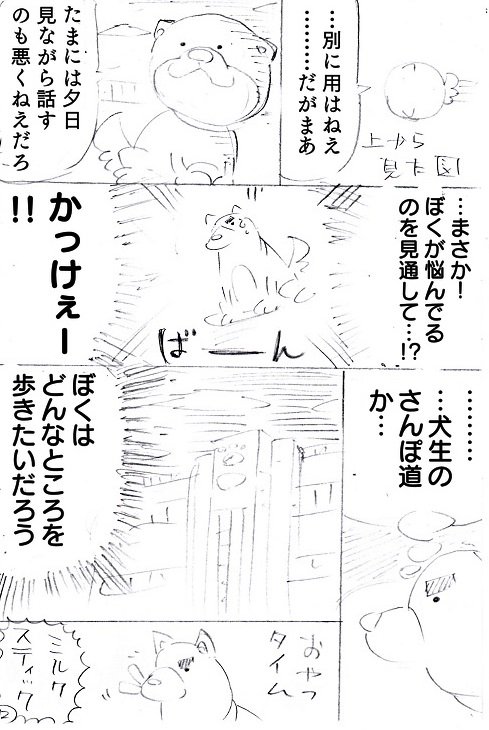 …別に用はねえ
………だがまあ
上から
見た図
たまには夕日
見ながら話す
のも悪くねえだろ
…まさか！
ぼくが悩んでる
のを見通して…!?
かっけぇー
!!
ばーん
………
…犬生の
さんぽ道
か…
ぼくは
どんなところを
歩きたいだろう
おやつ
タイム
ミルク
スティック